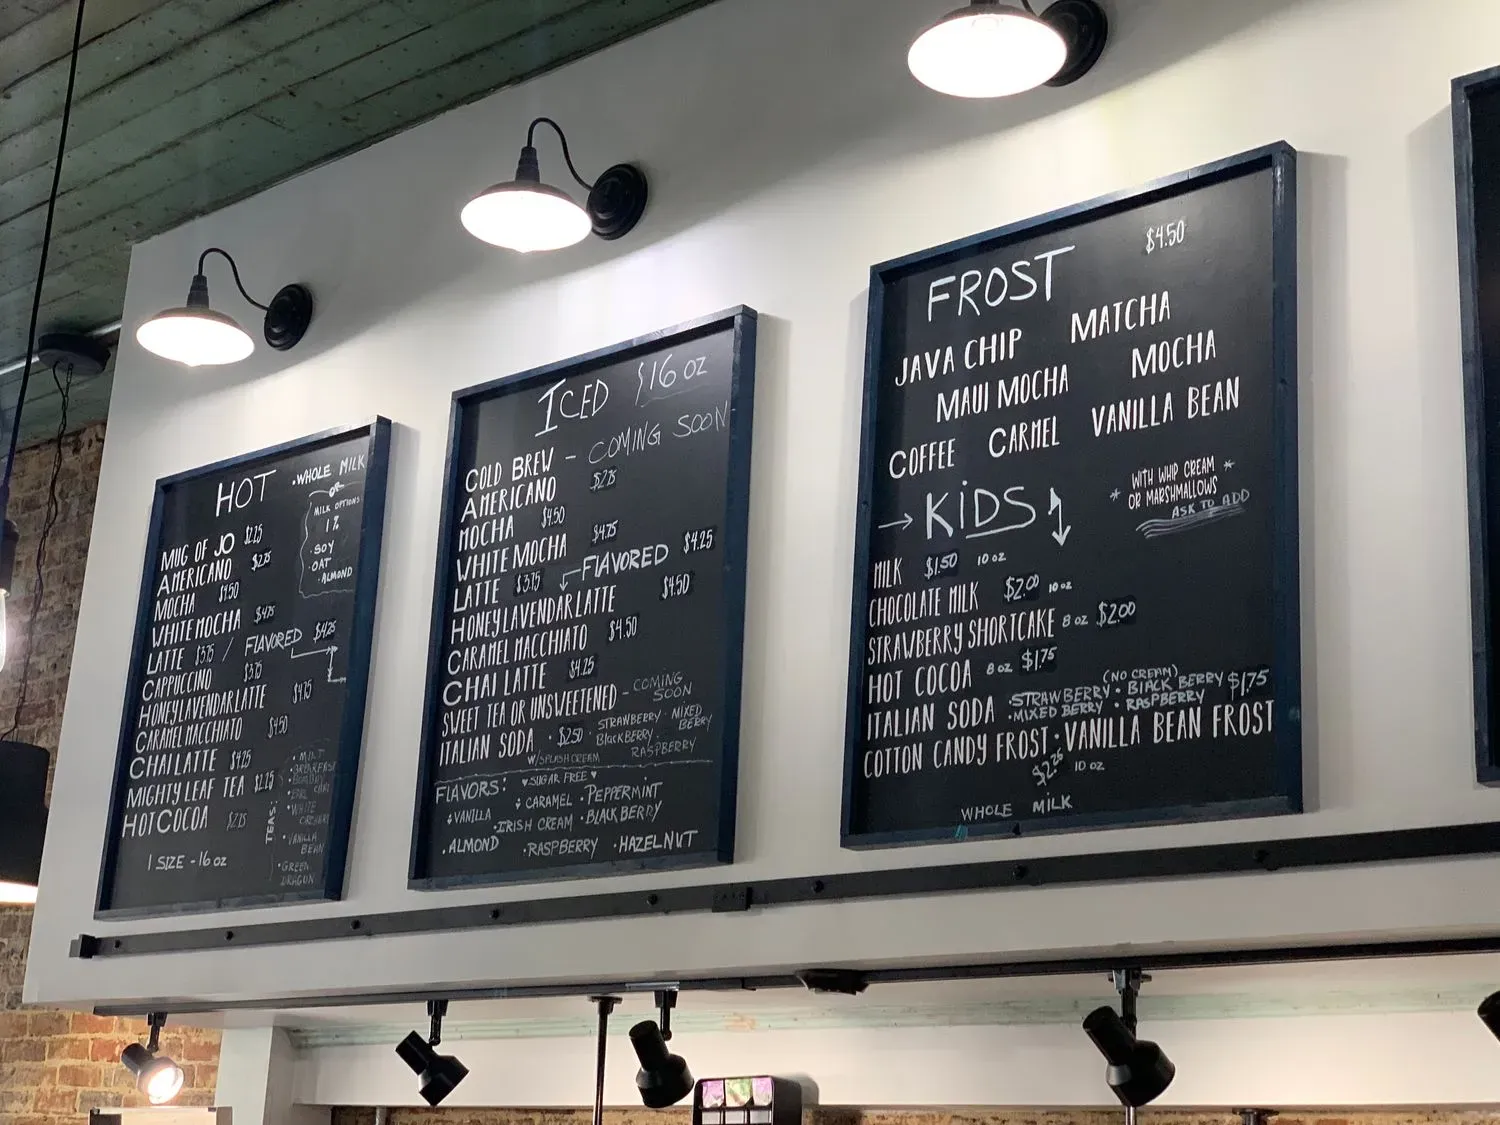 HOT
· WHOLE MILK
OR
MILK OPTIONS
1%
· SOY
· OAT
· ALMOND
MUG OF JO $2.25
AMERICANO $2.75
MOCHA $4.50
WHITE MOCHA $4.75
LATTE $3.75 / FLAVORED $4.25
CAPPUCCINO $3.75
HONEY LAVENDAR LATTE $4.75
CARAMEL MACCHIATO $4.50
CHAI LATTE $4.25
MIGHTY LEAF TEA
HOT COCOA $2.75
1 SIZE - 16 OZ
TEAS:
· MINT
· BREAKFAST
· EARL GREY
· WHITE
· VANILLA
BEAN
· GREEN
DRAGON
ICED 16 OZ
COLD BREW - COMING SOON
AMERICANO $2.75
MOCHA $4.50
WHITE MOCHA $4.75
LATTE $3.75 FLAVORED $4.25
HONEY LAVENDAR LATTE $4.50
CARAMEL MACCHIATO $4.50
CHAI LATTE $4.25
SWEET TEA OR UNSWEETENED - COMING SOON
ITALIAN SODA · $2.50 · STRAWBERRY · MIXED BERRY
BLACKBERRY · RASPBERRY
W/SPLASH CREAM
FLAVORS: ♥ SUGAR FREE ♥
VANILLA CARAMEL · PEPPERMINT
· IRISH CREAM · BLACKBERRY
· ALMOND · RASPBERRY · HAZELNUT
FROST $4.50
JAVA CHIP MATCHA
MAUI MOCHA MOCHA
COFFEE CARMEL VANILLA BEAN
* WITH WHIP CREAM *
OR MARSHMALLOWS
ASK TO ADD
→ KIDS
MILK $1.50 10 OZ
CHOCOLATE MILK $2.00 10 OZ
STRAWBERRY SHORTCAKE 8 OZ $2.00
HOT COCOA 8 OZ $1.75
(NO CREAM)
ITALIAN SODA · STRAWBERRY · BLACK BERRY $1.75
· MIXED BERRY · RASPBERRY
COTTON CANDY FROST · VANILLA BEAN FROST
10 OZ
WHOLE MILK